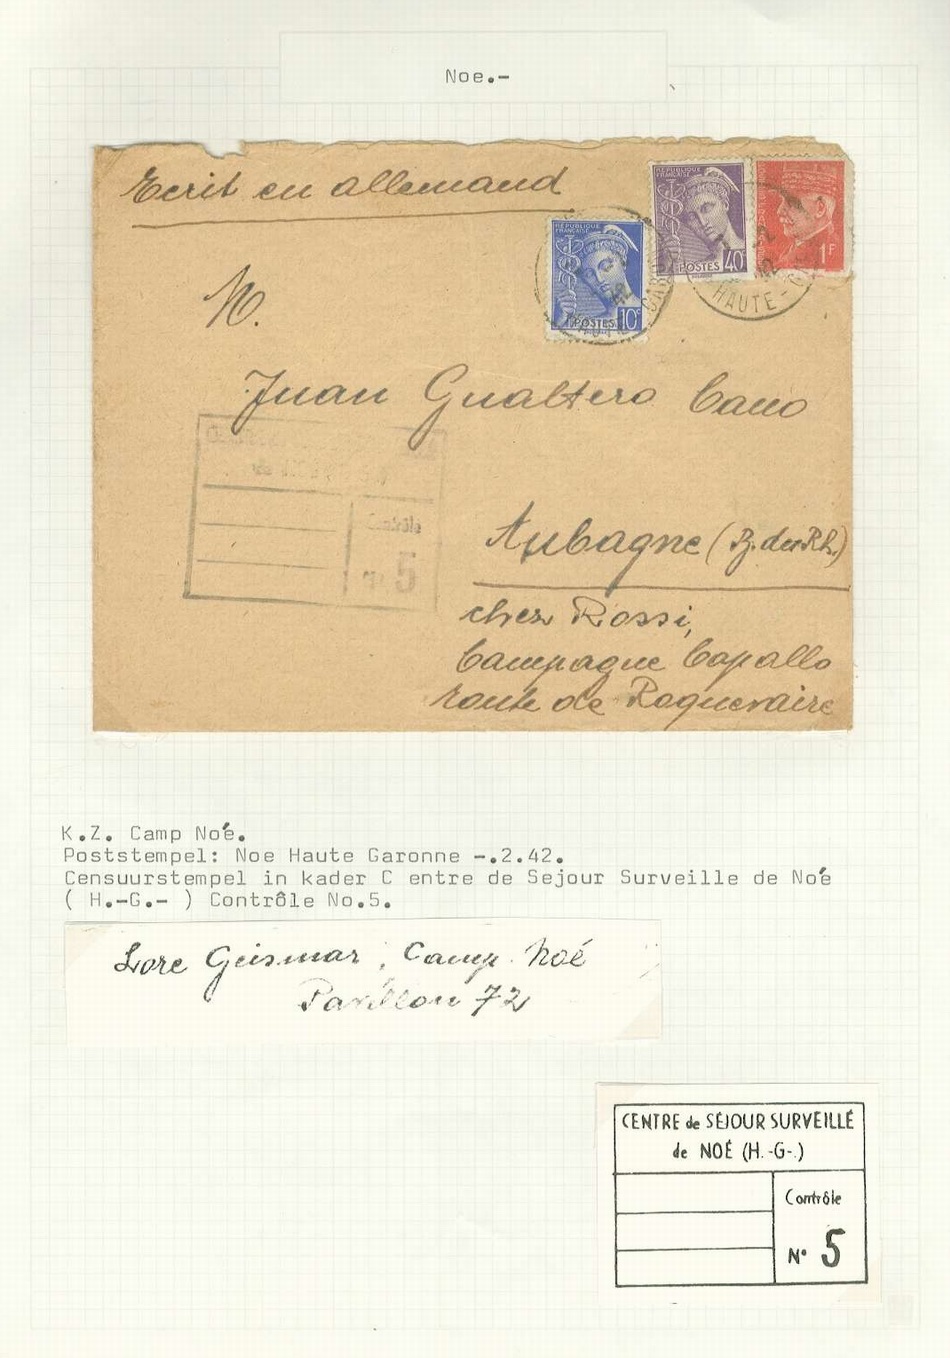 Noe.-
Ecrit en allemand
REPUBLIQUE FRANÇAISE
POSTES 40c
1F
HAUTE-GA
REPUBLIQUE FRANÇAISE
POSTES 10c
M.
Juan Gualtero Cano
Contrôle
N° 5
Aubagne (B. du Rh.)
chez Rossi,
Campagne Capallo
route de Roquevaire
K.Z. Camp Noé.
Poststempel: Noe Haute Garonne -.2.42.
Censuurstempel in kader C entre de Sejour Surveille de Noé
( H.-G.- ) Contrôle No.5.
Lore Geismar, Camp Noé
Pavillon 72
CENTRE de SÉJOUR SURVEILLÉ
de NOÉ (H.-G-.)
Contrôle
N° 5